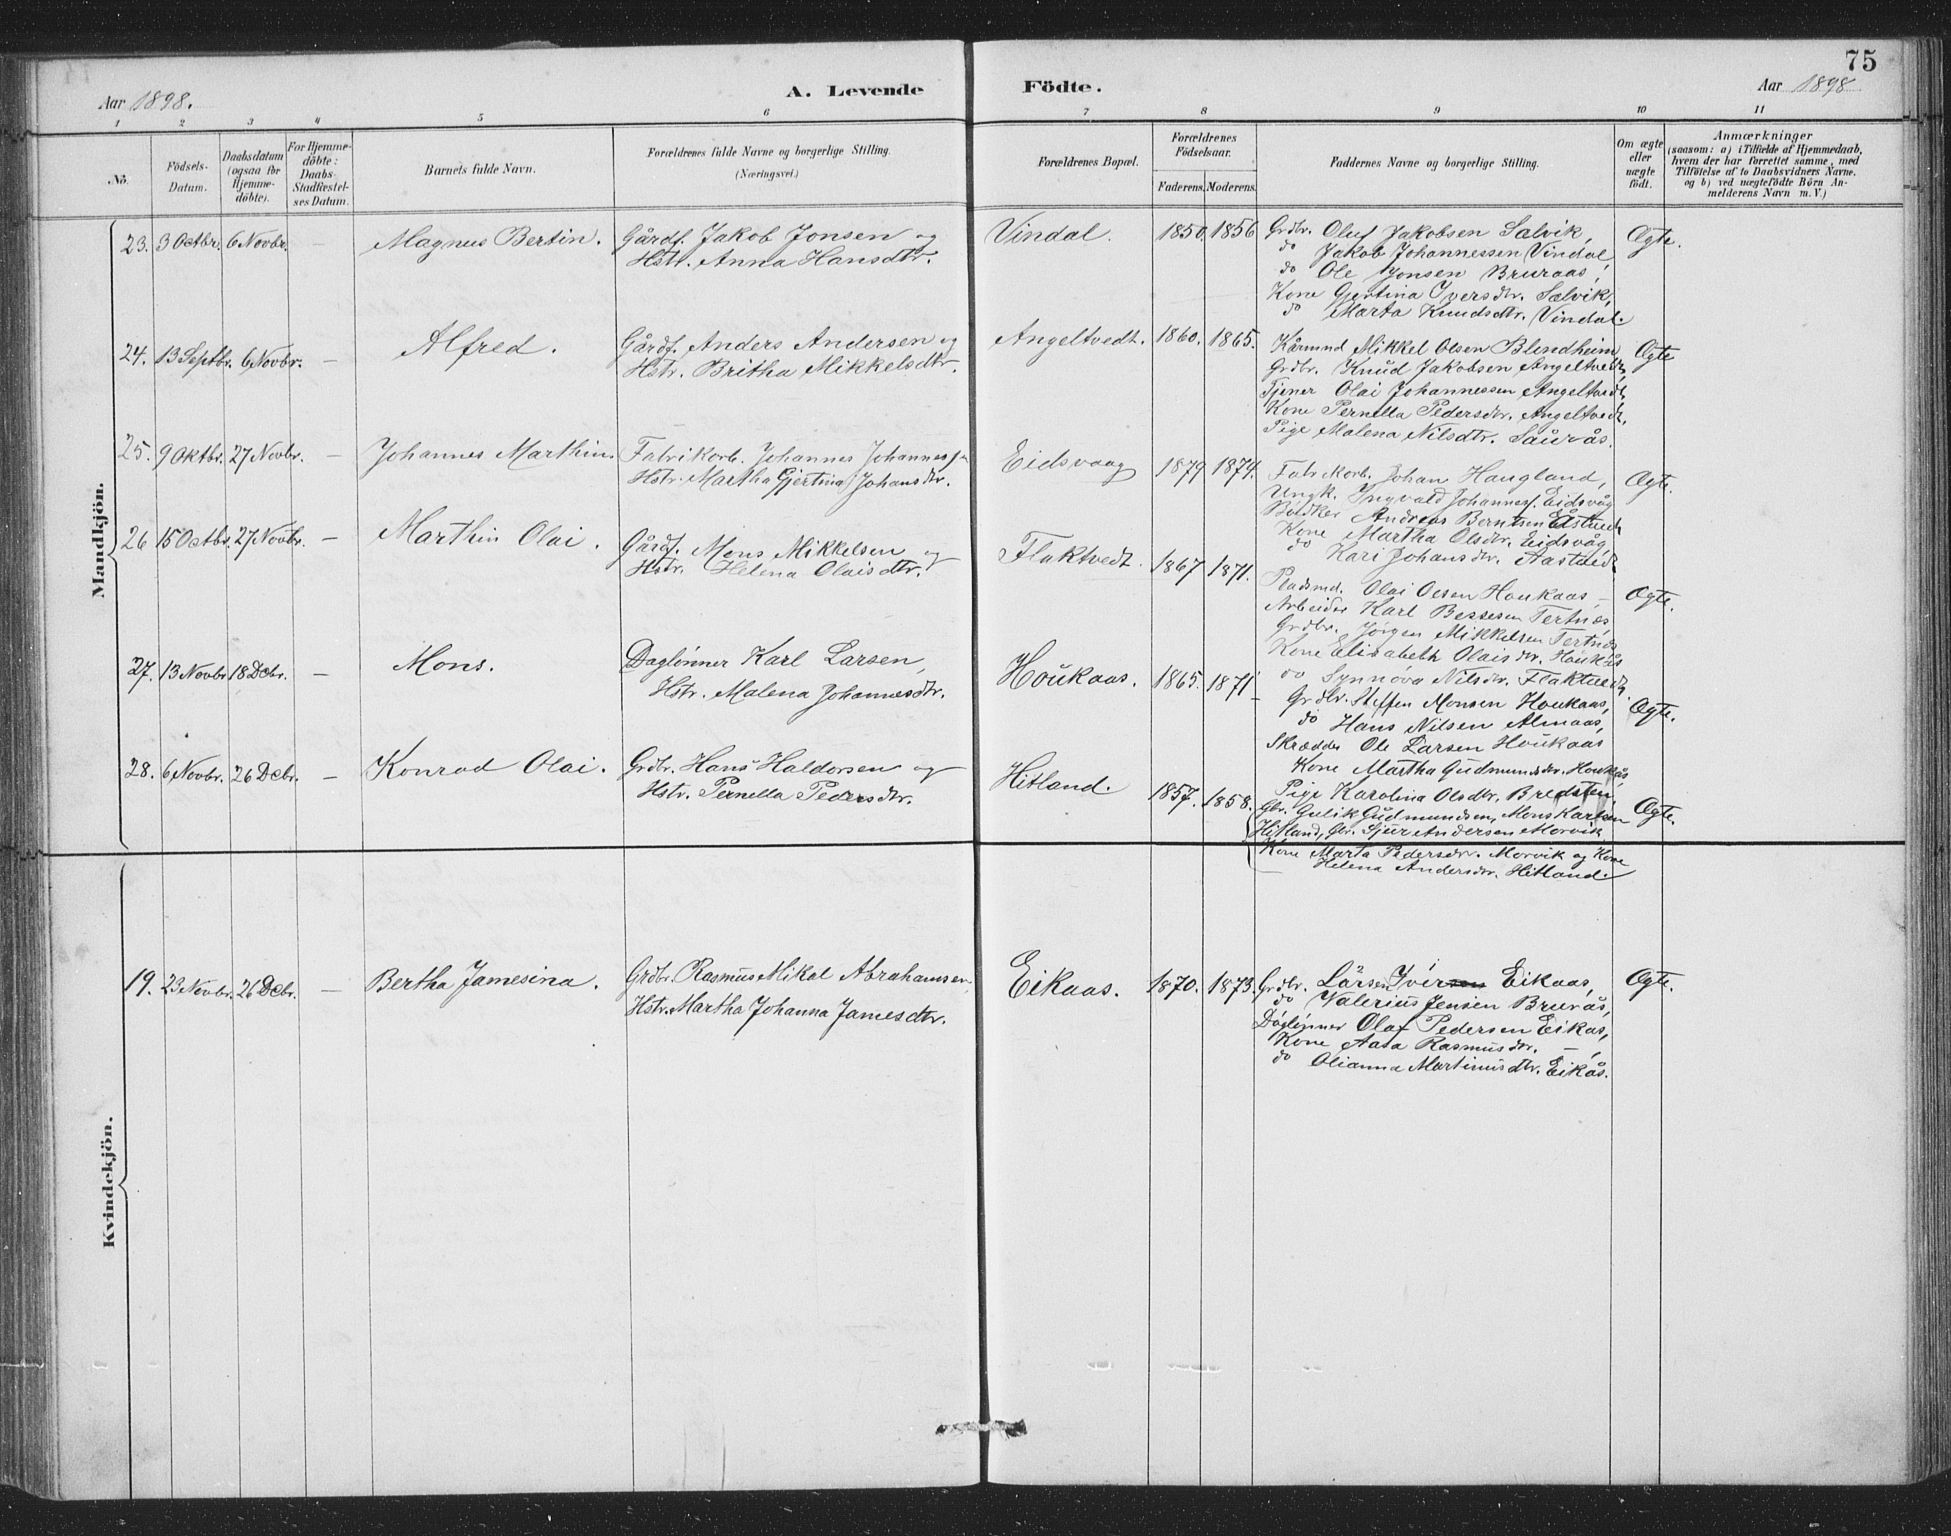 75
Aar 1898.
A. Levende
Födte.
Aar 1898
1
2
3
4
5
6
7
8
9
10
11
No.
Födsels-
Datum.
Daabsdatum
(ogsaa for
Hjemme-
döbte).
For Hjemme-
döbte:
Daabs-
Stadfæstel-
ses Datum.
Barnets fulde Navn.
Forældrenes fulde Navne og borgerlige Stilling.
(Næringsvei.)
Forældrenes Bopæl.
Forældrenes
Födselsaar.
Faderens. Moderens.
Faddernes Navne og borgerlige Stilling.
Om ægte
eller
uægte
födt.
Anmærkninger
(saasom: a) i Tilfælde af Hjemmedaab,
hvem der har forrettet samme, med
Tilföielse af to Daabsvidners Navne.
og b) ved uægtefödte Börn An-
melderens Navn m. V.)
Mandkjön.
23. 3 Octbr. 6 Novbr. – Magnus Bertin. Gårdf. Jakob Jonsen og
Hstr. Anna Hansdtr.
Vindal. 1850. 1856 Grdbr. Oluf Jakobsen Salvik, Ægte.
do Jakob Johannessen Vindal
do Ole Jonsen Bruraas,
Kone Gjertina Iversdtr. Salvik,
do Marta Knudsdtr. Vindal.
24. 13 Septbr. 6 Novbr. – Alfred. Gårdf. Anders Andersen og
Hstr. Britha Mikkelsdtr.
Angeltvedt. 1860. 1865. Kårmnd Mikkel Olsen Blindheim Ægte
Grdbr. Knud Jakobsen Angeltvedt,
Tjener Olai Johannessen Angeltvedt,
Kone Pernella Pedersdtr. Angeltvedt,
Pige Malena Nilsdtr. Saurås.
25. 9 Oktbr. 27 Novbr. – Johannes Marthin. Fabrikarb. Johannes Johannesf.
Hstr. Martha Gjertina Johansdtr.
Eidsvaag 1879 1874. Fabrikarb. Johan Haugland, Ægte.
Ungk. Ingvald Johannesf. Eidsvåg
Bødker Andreas Berntsen
Kone Martha Olsdtr. Eidsvåg
do Kari Johansdtr.
26 15 Octbr. 27 Novbr. – Marthin Olai. Gårdf. Mons Mikkelsen og
Hstr. Helena Olaisdtr.
Flaktvedt. 1867 1871. Pladsmd. Olai Olsen Houkaas, Ægte.
Arbeider Karl Bessesen Tertnæs
Grdbr. Jørgen Mikkelsen Tertnæs
Kone Elisabeth Olaisdtr. Houkås
do Synnøva Nilsdtr. Flaktvedt.
27. 13 Novbr 18 Dcbr. – Mons. Daglønner Karl Larsen,
Hstr. Malena Johannesdtr.
Houkaas. 1865. 1871 Grdbr. Steffen Monsen Houkaas, Ægte.
do Hans Nilsen Almaas,
Skrædder Ole Larsen Houkaas
Kone Martha Gudmundsdtr. Houkås,
Pige Karolina Olsdtr. Bredsten
28. 6 Novbr. 26 Dcbr. – Konrad Olai. Grdbr. Hans Haldorsen og
Hstr. Pernella Pedersdtr.
Hitland. 1857. 1858. Gbr. Gulik Gudmundsen, Mons Karlsen Ægte.
Hitland, Gbr. Sjur Andersen Morvik
Kone Marta Pedersdtr. Morvik og Kone
Helena Andersdtr. Hitland.
Kvindekjön.
19. 23 Novbr. 26 Dcbr. – Bertha Jamesina. Grdbr. Rasmus Mikal Abrahamsen,
Hstr. Martha Johanna Jamesdtr.
Eikaas. 1870. 1873. Grdbr. Larsen Iversen Eikaas, Ægte.
do Valerius Jensen Brurås,
Daglønner Olaf Pedersen Eikas,
Kone Aasa Rasmusdtr. –,
do Olianna Martinusdtr. Eikås.